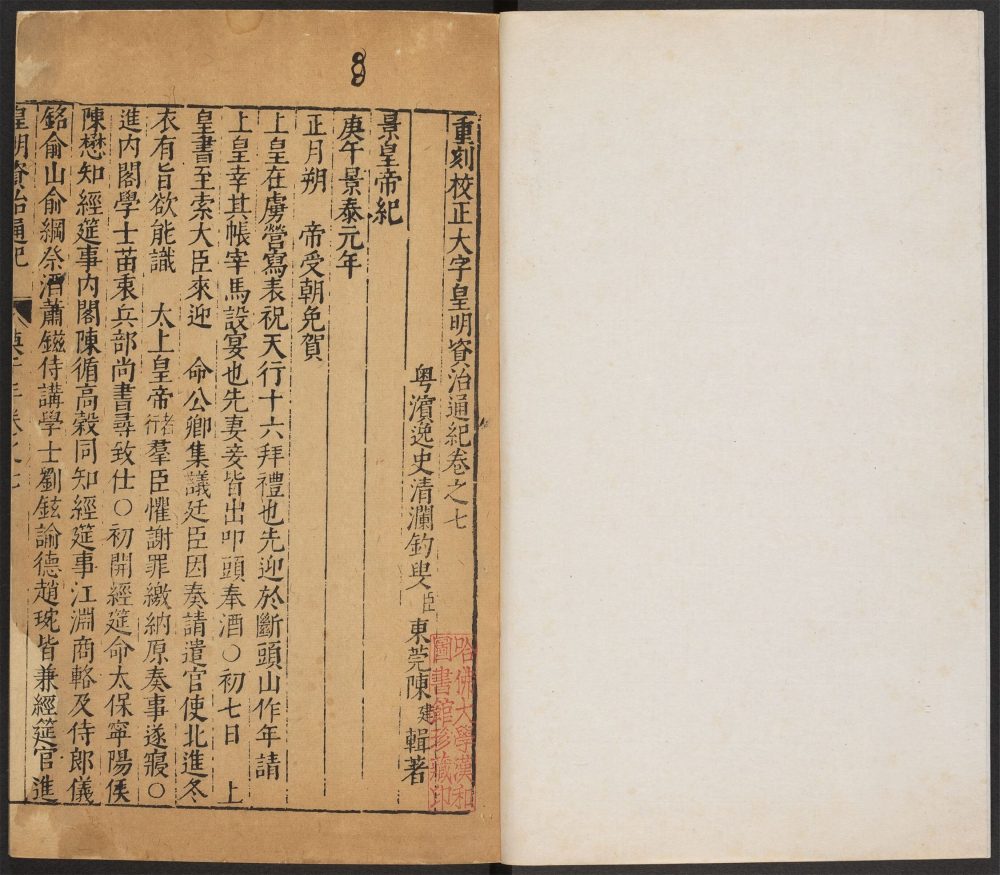 重刻校正大字皇明資治通紀卷之七
粤濱逸史清瀾釣叟臣東莞陳建輯著
景皇帝紀
庚午景泰元年
正月朔 帝受朝免賀
上皇在虜營寫表祝天行十六拜禮也先迎於斷頭山作年請
上皇幸其帳宰馬設宴也先妻妾皆出叩頭奉酒○初七日 上
皇書至索大臣來迎 命公卿集議廷臣因奏請遣官使北進冬
衣有旨欲能識 太上皇帝者行羣臣懼謝罪繳納原奏事遂寢○
進內閣學士苗衷兵部尚書尋致仕○初開經筵命太保寧陽侯
陳懋知經筵事內閣陳循高穀同知經筵事江淵商輅及侍郎儀
銘俞山俞綱祭酒蕭鎡侍講學士劉鉉諭德趙琬皆兼經筵官進
皇明資治通紀 卷之七
哈佛大學漢和
圖書館珍藏印
8